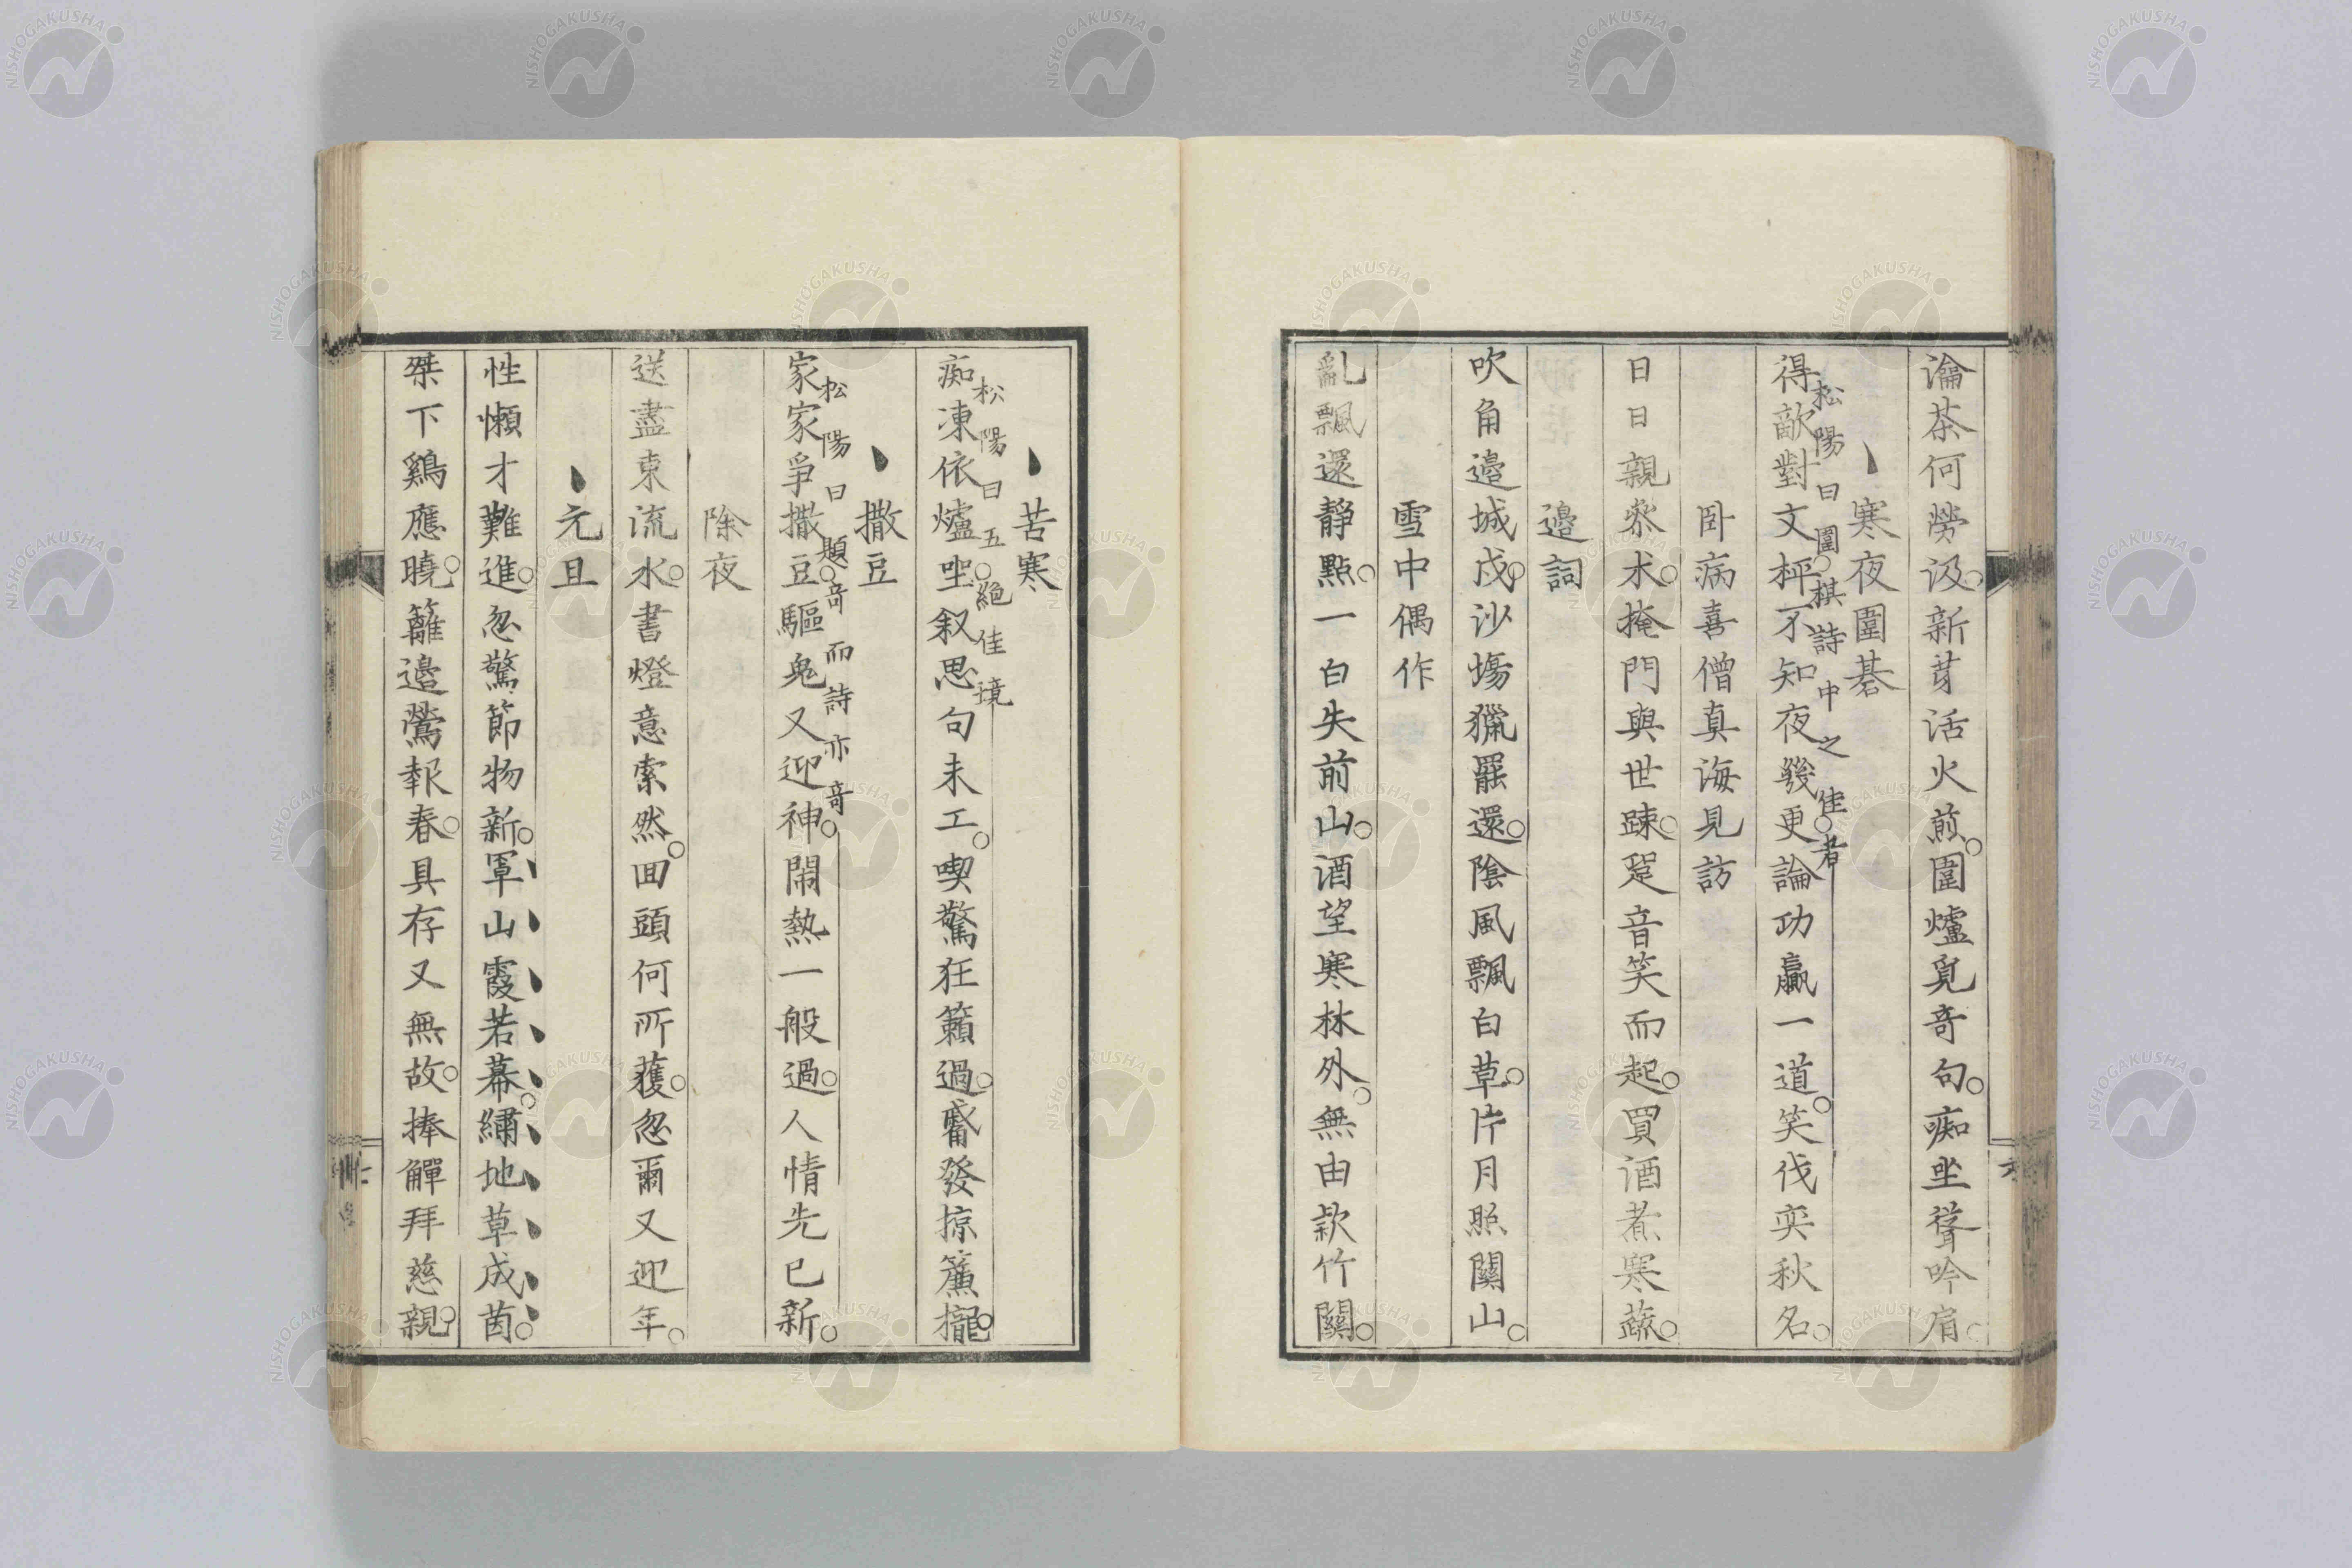 瀹茶何勞汲新芽活火煎圍爐覓奇句痴坐聳吟肩
寒夜圍碁
松陽曰圍棋詩中之佳者
得敵對文枰不知夜幾更論功贏一道笑伐奕秋名
卧病喜僧真海見訪
日日親參朮掩門與世踈跫音笑而起買酒煮寒蔬
邉詞
吹角邉城戍沙塲獵罷還陰風飄白草片月照關山
雪中偶作
亂飄還靜點一白失前山酒望寒林外無由欵竹關
苦寒
松陽曰五絕佳境
痴凍依爐坐叙思句未工喫驚狂籟過發掠簾櫳
撒豆
松陽曰題奇而詩亦奇
家家爭撒豆驅鬼又迎神鬧熱一般過人情先已新
除夜
送盡東流水書燈意索然回頭何所獲忽爾又迎年
元旦
性懶才難進忽驚節物新罩山霞若幕繡地草成茵
桀下鷄應曉籬邉鶯報春具存又無故捧觶拜慈親
NISHOGAKUSHA